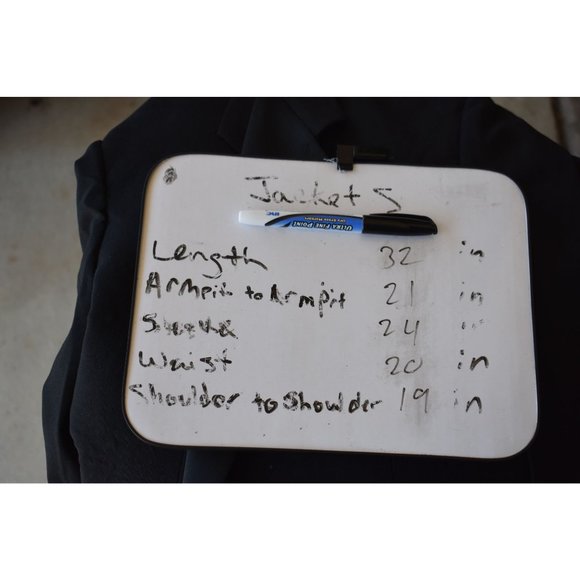 Jacket S
BIC ULTRA FINE POINT
Length 32 in
Armpit to Armpit 21 in
Sleeve 24 in
Waist 20 in
Shoulder to Shoulder 19 in